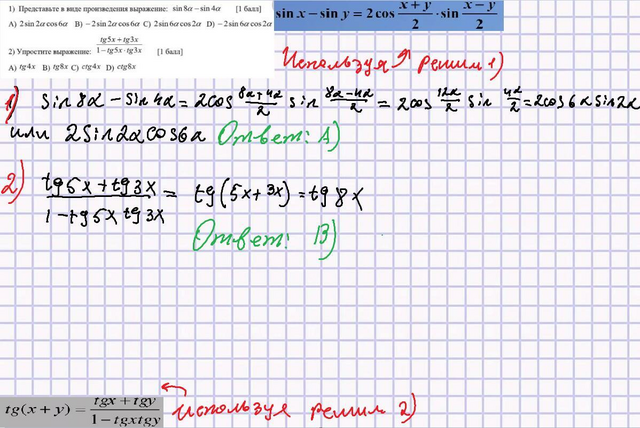 1) Представьте в виде произведения выражение: sin 8α − sin 4α [1 балл]
A) 2 sin 2α cos 6α B) − 2 sin 2α cos 6α C) 2 sin 6α cos 2α D) − 2 sin 6α cos 2α
2) Упростите выражение: (tg5x + tg3x)/(1 − tg5x · tg3x) [1 балл]
A) tg4x B) tg8x C) ctg4x D) ctg8x
sin x − sin y = 2 cos (x + y)/2 · sin (x − y)/2
Используя решим 1)
1) sin 8α − sin 4α = 2cos (8α+4α)/2 sin (8α−4α)/2 = 2cos 12α/2 sin 4α/2 = 2cos6α sin2α
или 2sin2αcos6α Ответ: A)
2) (tg5x + tg3x)/(1 − tg5x tg3x) = tg(5x + 3x) = tg 8x
Ответ: B)
tg(x + y) = (tgx + tgy)/(1 − tgxtgy)
Используя решим 2)